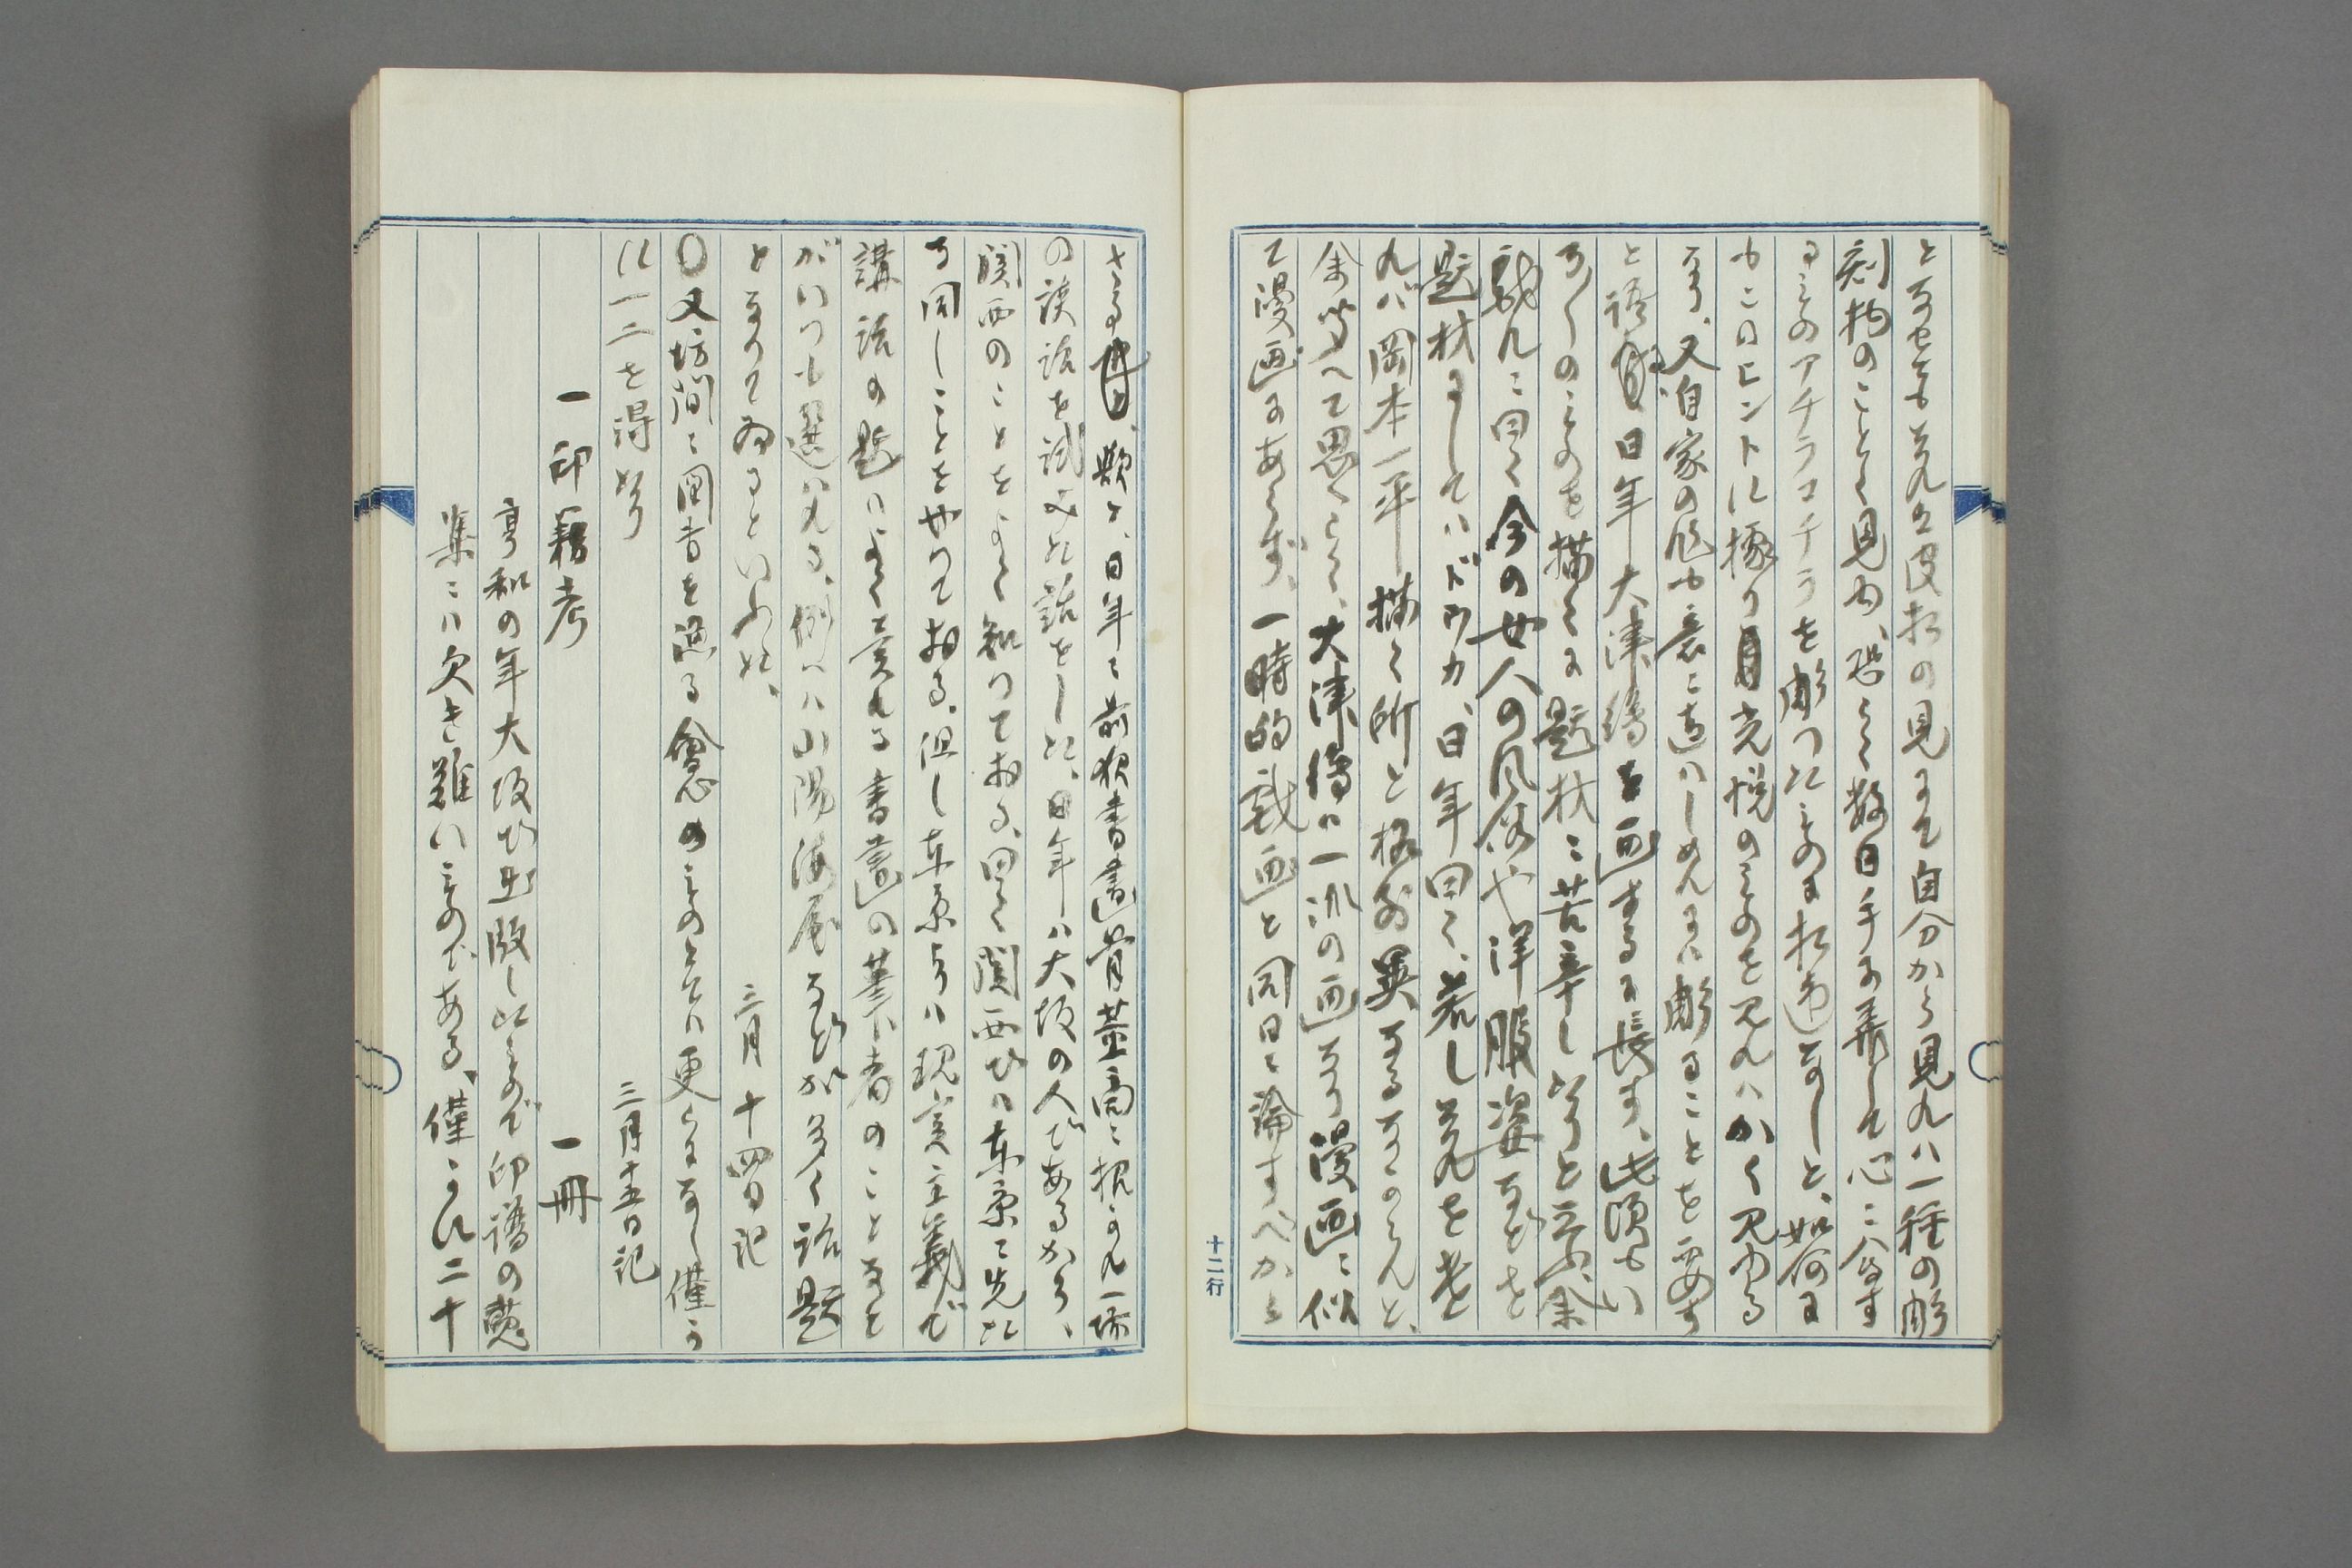 となせども是れ皮相の見にて自分から見れハ一種の彫
刻物のことく見由、恐らく数日手に弄して心ニ会す
るものアチラコチラを彫つたものに相違なしと、如何に
もこのヒントに據り光悦のものを見れハかく見ゆる
なり、又自家の作も意ニ適ハしめんにハ彫ることを要す
と語る、日年大津繪を画するに長す、此頃もい
ろ〱のものを描くに題材ニ苦辛し居ると云ふ、余
戯れニ曰く今の女人の風俗や洋服姿などを
題材にしてハドウカ、日年曰く、若し是れを画と
れバ岡本一平描く所と格別異なるなからんと、
余答へて思へらく、大津繪ハ一派の画なり漫画ニ似
て漫画にあらず、一時的戯画と同日ニ論すべから
さる歟と、日年ニ前被書畫骨董商ニ招かれ一場
の談話を試みた話をした、日年ハ大坂の人であるから、
関西のことをよく知つておる、曰く関西でハ東京ニ先た
ち同しことをやつておる、但し東京よりハ現実主義で
講話の題ハよく売れる書畫の筆者のことなど
がいつも選ハれる、例へハ山陽海屋などが多く話題
となりて居るといふた、
三月十四日記
〇又坊間ニ図書を漁る會心のものとてハ更らになし僅か
に一二を得たり
三月十五日記
一印籍考 一冊
享和の年大坂で出版したもので印譜の蒐
集ニハ欠き難いものである、僅かに二十
十二行